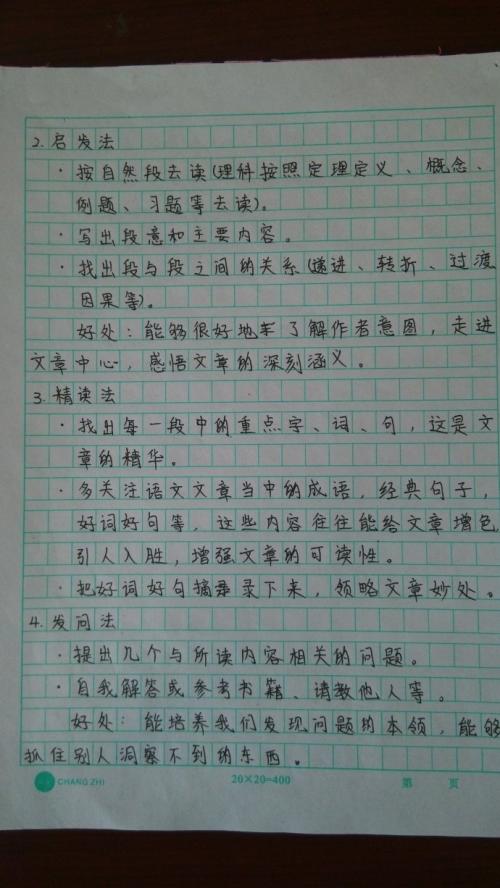 2.启发法
·按自然段去读(理科按照定理定义、概念、
例题、习题等去读)。
·写出段意和主要内容。
·找出段与段之间的关系(递进、转折、过渡
因果等)。
好处:能够很好地了解作者意图,走进
文章中心,感悟文章的深刻涵义。
3.精读法
·找出每一段中的重点字、词、句,这是文
章的精华。
·多关注语文文章当中的成语,经典句子,
好词好句等,这些内容往往能给文章增色
引人入胜,增强文章的可读性。
·把好词好句摘录下来,领略文章妙处。
4.发问法
·提出几个与所读内容相关的问题。
·自我解答或参考书籍、请教他人等。
好处:能培养我们发现问题的本领,能够
抓住别人洞察不到的东西。
CHANG ZHI 20×20=400 第 页